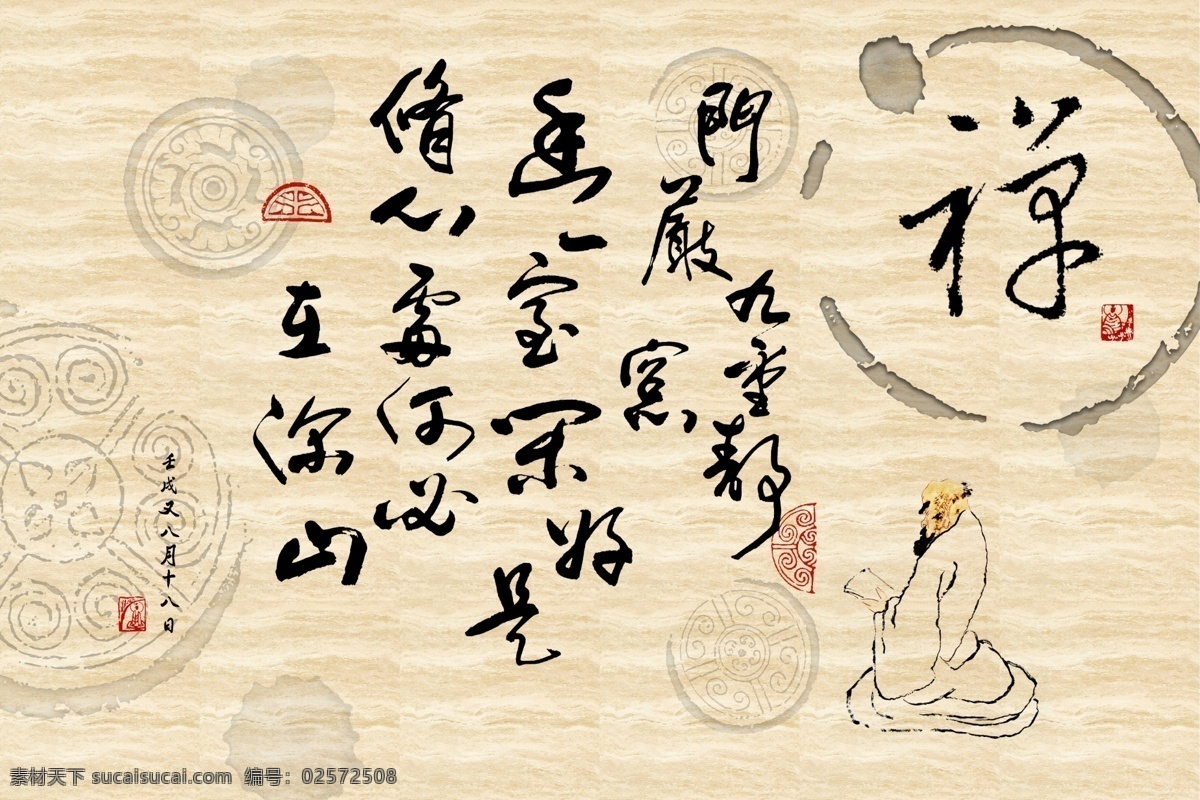 禅
門嚴九重靜窓
幽一室閑好是
脩心處何必
在深山
壬戌又八月十八日
素材天下 sucaisucai.com 编号：02572508